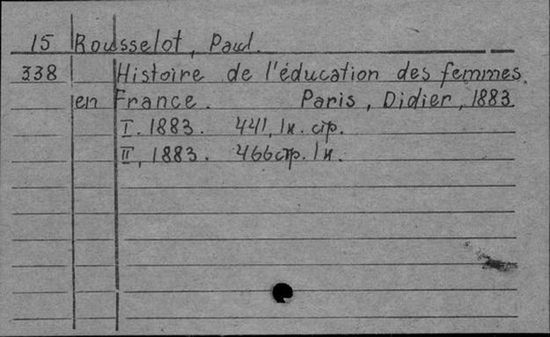 15 Rousselot, Paul.
338 Histoire de l'éducation des femmes
en France. Paris, Didier, 1883.
I. 1883. 441, 1 н. стр.
II, 1883. 466 стр. 1 н.